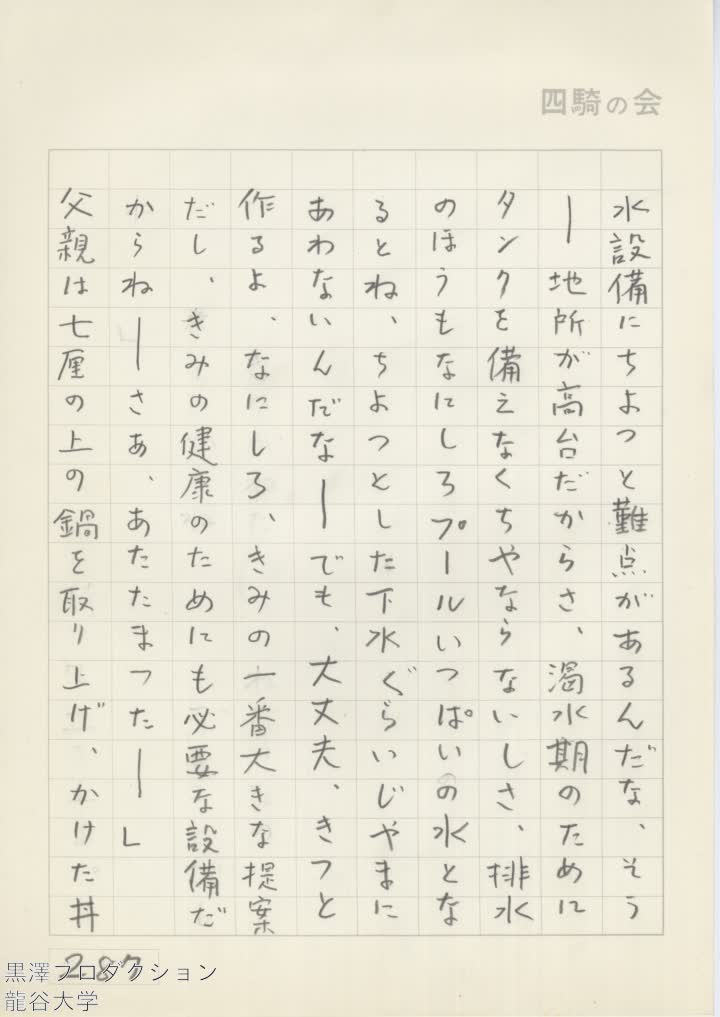 四騎の会
水設備にちよつと難点があるんだな、そう
―地所が高台だからさ、渇水期のために
タンクを備えなくちやならないしさ、排水
のほうもなにしろプールいつぱいの水とな
るとね、ちよつとした下水ぐらいじやまに
あわないんだな―でも、大丈夫、きつと
作るよ、なにしろ、きみの一番大きな提案
だし、きみの健康のためにも必要な設備だ
からね―さあ、あたたまつた―」
父親は七厘の上の鍋を取り上げ、かけた丼
287
黒澤プロダクション
龍谷大学